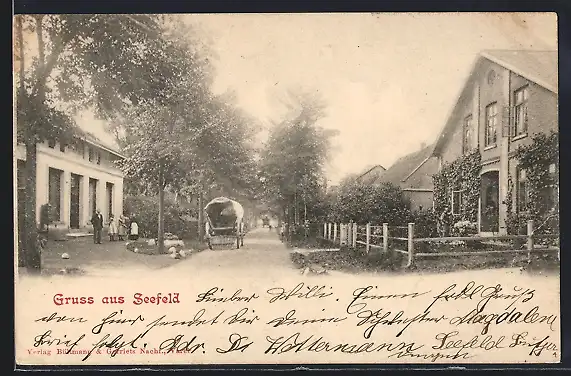 Gruss aus Seefeld Lieber Willi. Einen frdl. Gruß
von hier sendet dir deine Schwester Magdalene
Brief folgt. Adr. Dr. Wattermann Seefeld
Verlag Bültmann & Gerriets Nachf., Varel.